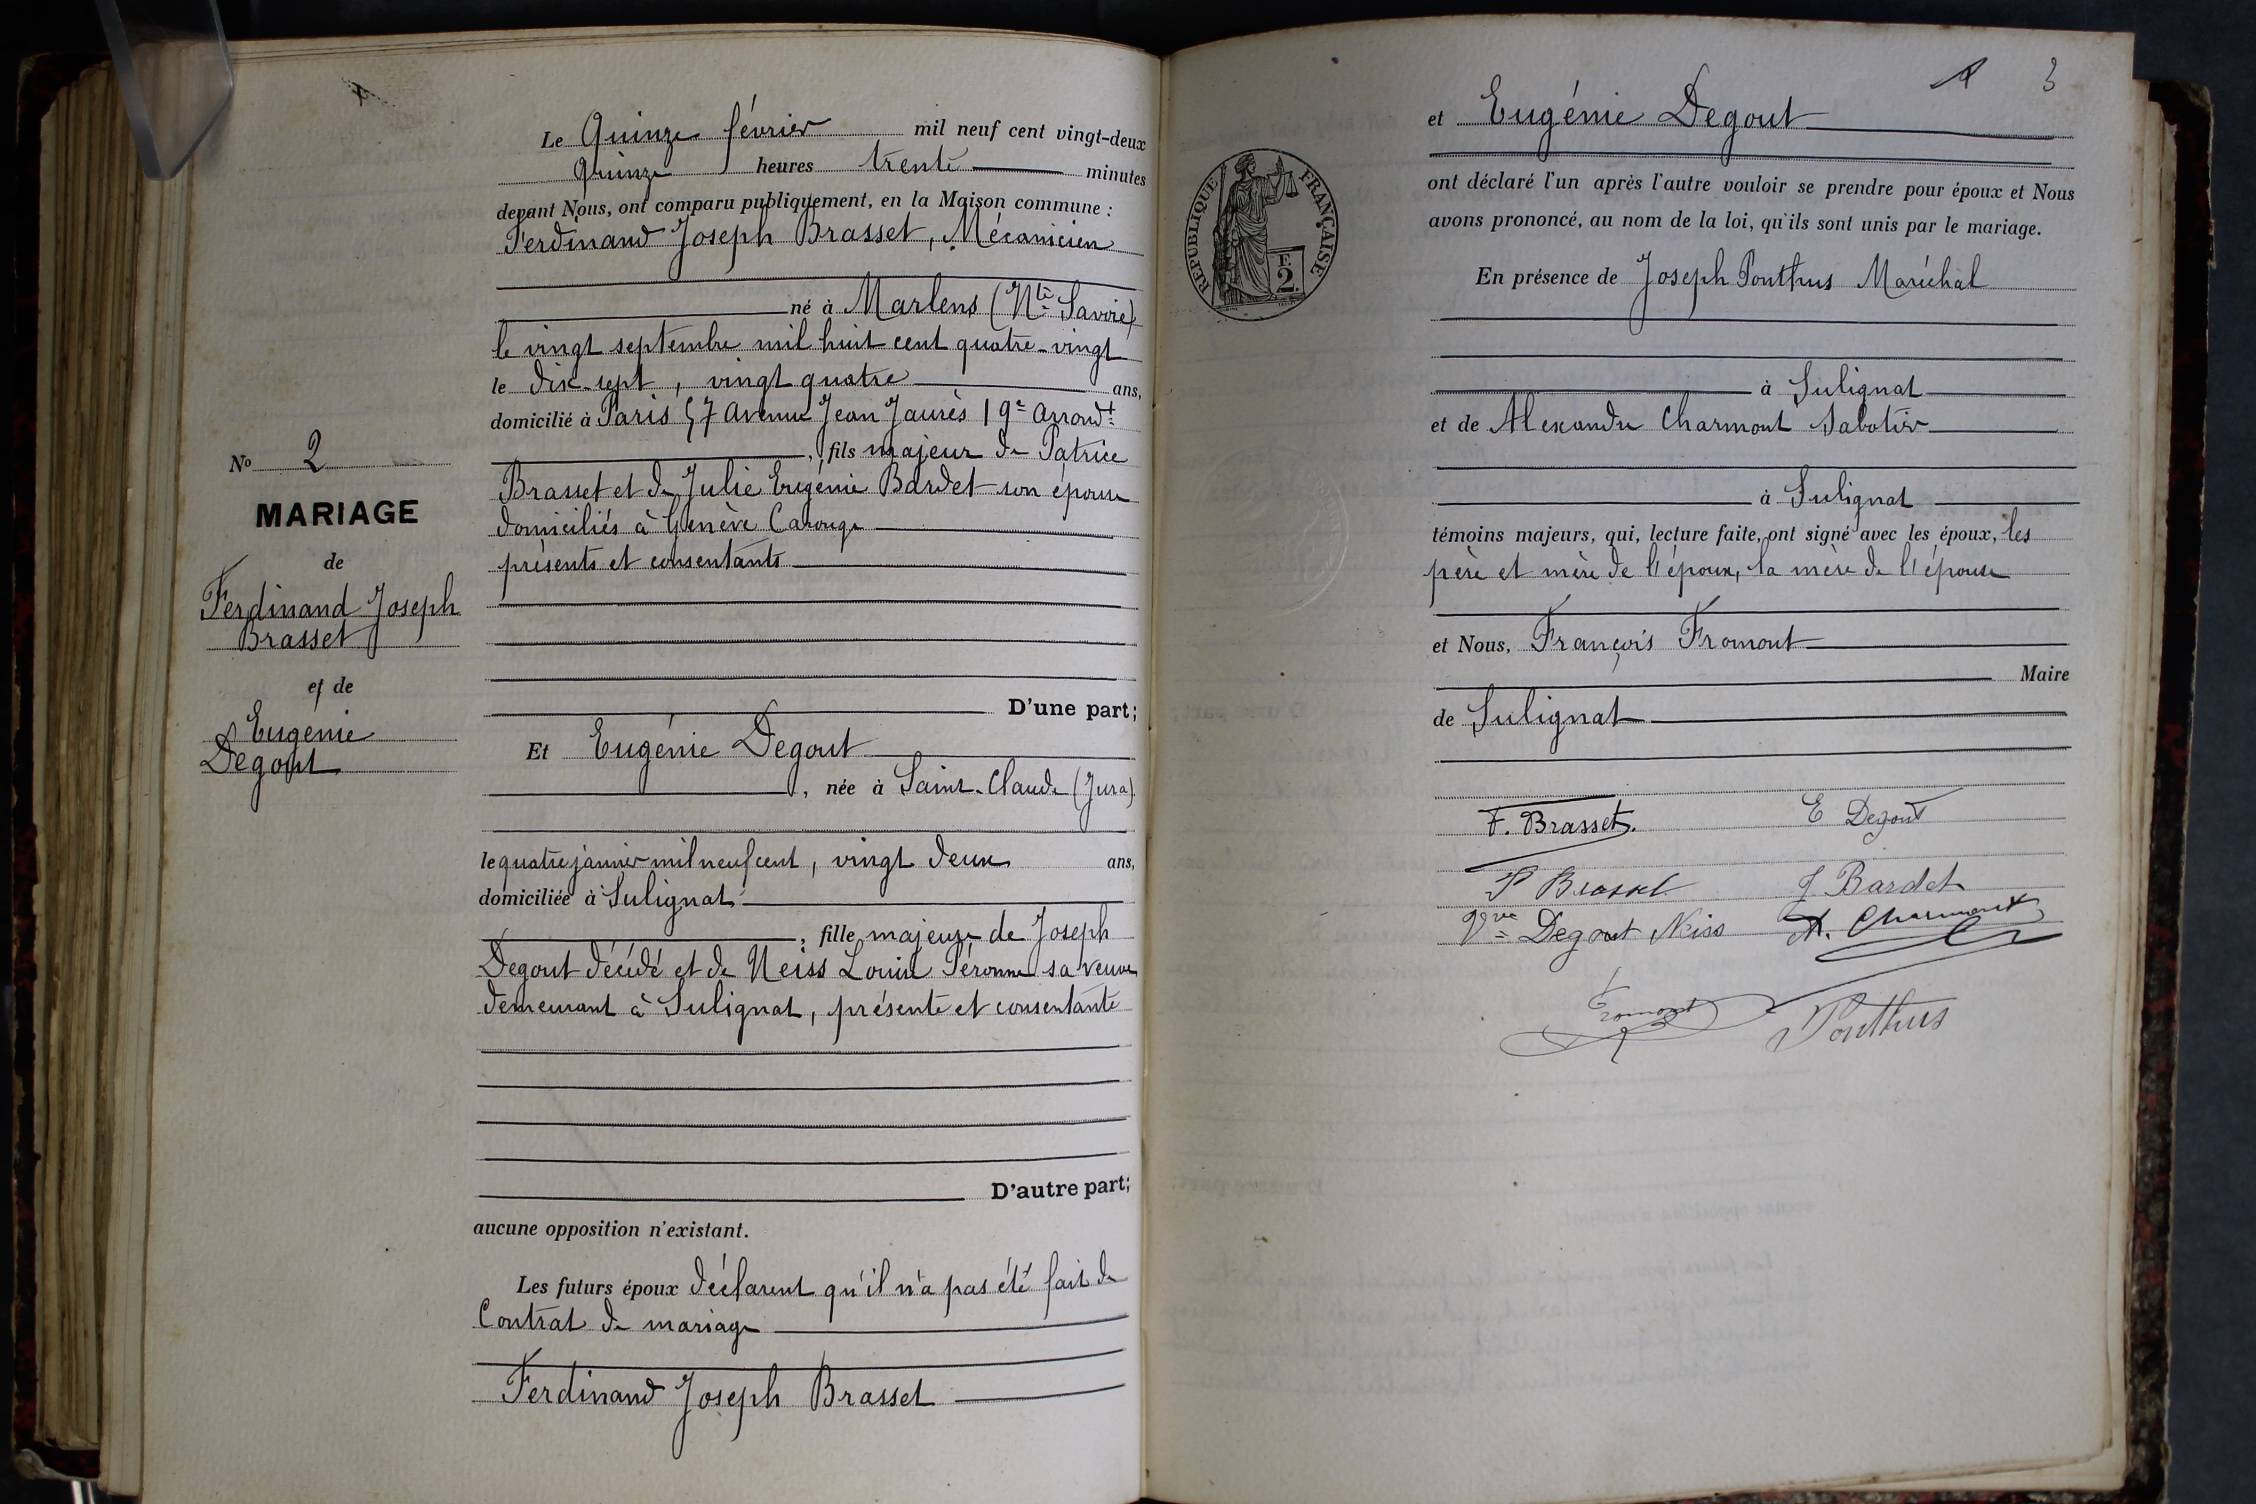 N° 2
MARIAGE
de
Ferdinand Joseph
Brasset
et de
Eugenie
Degout
Le Quinze février mil neuf cent vingt-deux
quinze heures trente minutes
devant Nous, ont comparu publiquement, en la Maison commune :
Ferdinand Joseph Brasset, Mécanicien
né à Marlens (Hte Savoie)
le vingt septembre mil huit cent quatre-vingt
le dix-sept, vingt quatre ans,
domicilié à Paris 57 Avenue Jean Jaurès 19e Arrondt
, fils majeur de Patrice
Brasset et de Julie Eugénie Bardet son épouse
domiciliés à Genève Carouge
présents et consentants
D'une part;
Et Eugénie Degout
, née à Saint-Claude (Jura)
le quatre janvier mil neuf cent, vingt deux ans,
domiciliée à Sulignat
, fille majeure de Joseph
Degout décédé et de Neiss Louise Péronne sa veuve
demeurant à Sulignat, présente et consentante
D'autre part;
aucune opposition n'existant.
Les futurs époux déclarent qu'il n'a pas été fait de
Contrat de mariage
Ferdinand Joseph Brasset
3
et Eugénie Degout
ont déclaré l'un après l'autre vouloir se prendre pour époux et Nous
avons prononcé, au nom de la loi, qu'ils sont unis par le mariage.
RÉPUBLIQUE FRANÇAISE
F.
2.
En présence de Joseph Ponthus Maréchal
à Sulignat
et de Alexandre Charmont Sabotier
à Sulignat
témoins majeurs, qui, lecture faite, ont signé avec les époux, les
père et mère de l'époux, la mère de l'épouse
et Nous, François Fromont
Maire
de Sulignat
F. Brasset. E Degout
P Brasset J Bardet
Vve Degout Neiss A. Charmont
Fromont Ponthus